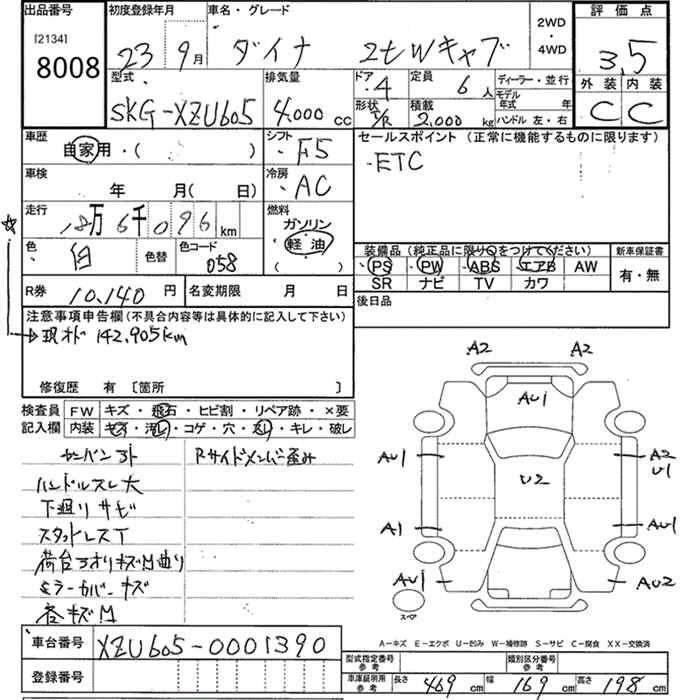 出品番号 初度登録年月 車名・グレード 2WD・4WD 評価点
[2134]
8008
23 9月 ダイナ 2tWキャブ 3.5
型式 排気量 ドア 4 定員 6人 ディーラー・並行 外装 内装
SKG-XZU605 4.000cc 形状 積載 2,000kg モデル年式 年 ハンドル 左・右 C C
車歴 自家用・( ) シフト F5 セールスポイント (正常に機能するものに限ります)
・ETC
車検 年 月(日) 冷房 AC
走行 18万6千096km 燃料 ガソリン 軽油 ( )
色 白 色替 色コード 058
装備品 (純正品に限り○をつけてください) 新車保証書
PS PW ABS エアB AW 有・無
SR ナビ TV カワ
R券 10,140円 名変期限 月 日 後日品
注意事項申告欄 (不具合内容等は具体的に記入して下さい)
☆→現オド 142,905km
修復歴 有 〔箇所 〕
検査員記入欄 FW キズ・飛石・ヒビ割・リペア跡・×要
内装 キズ・汚レ・コゲ・穴・スレ・キレ・破レ
Rサイドメンバー歪み
ハンドルスレ大
下廻りサビ
スタッドレスT
荷台アオリキズ凹曲り
ミラーカバーキズ
各キズ凹
A2 A2
AU1
AU1 A2
U1
U2
A1 AU1
AU1 AU2
スペア
A-キズ E-エクボ U-凹み W-補修跡 S-サビ C-腐食 XX-交換済
車台番号 XZU605-0001390
登録番号
型式指定番号 参考 類別区分番号 参考
車庫証明用 参考 長さ 469cm 幅 169cm 高さ 198cm